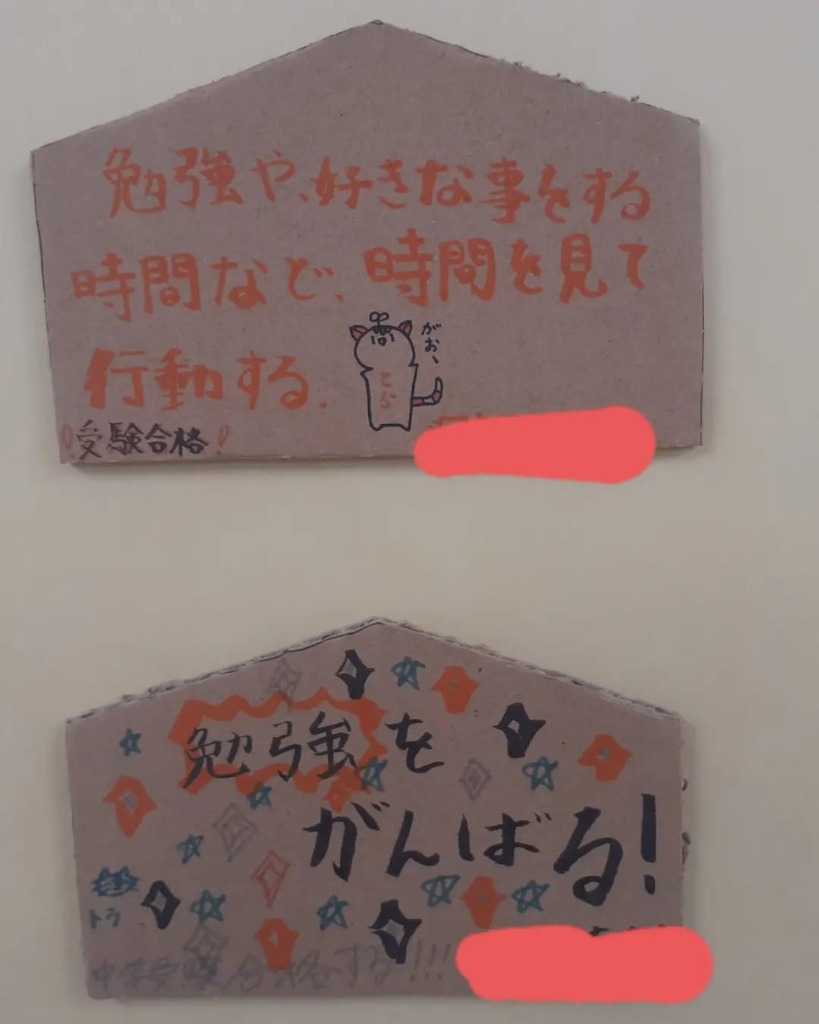 勉強や、好きな事をする
時間など、時間を見て
行動する。
がお、
とら
!受験合格!
勉強を
がんばる!
トラ
中学受験合格する!!!